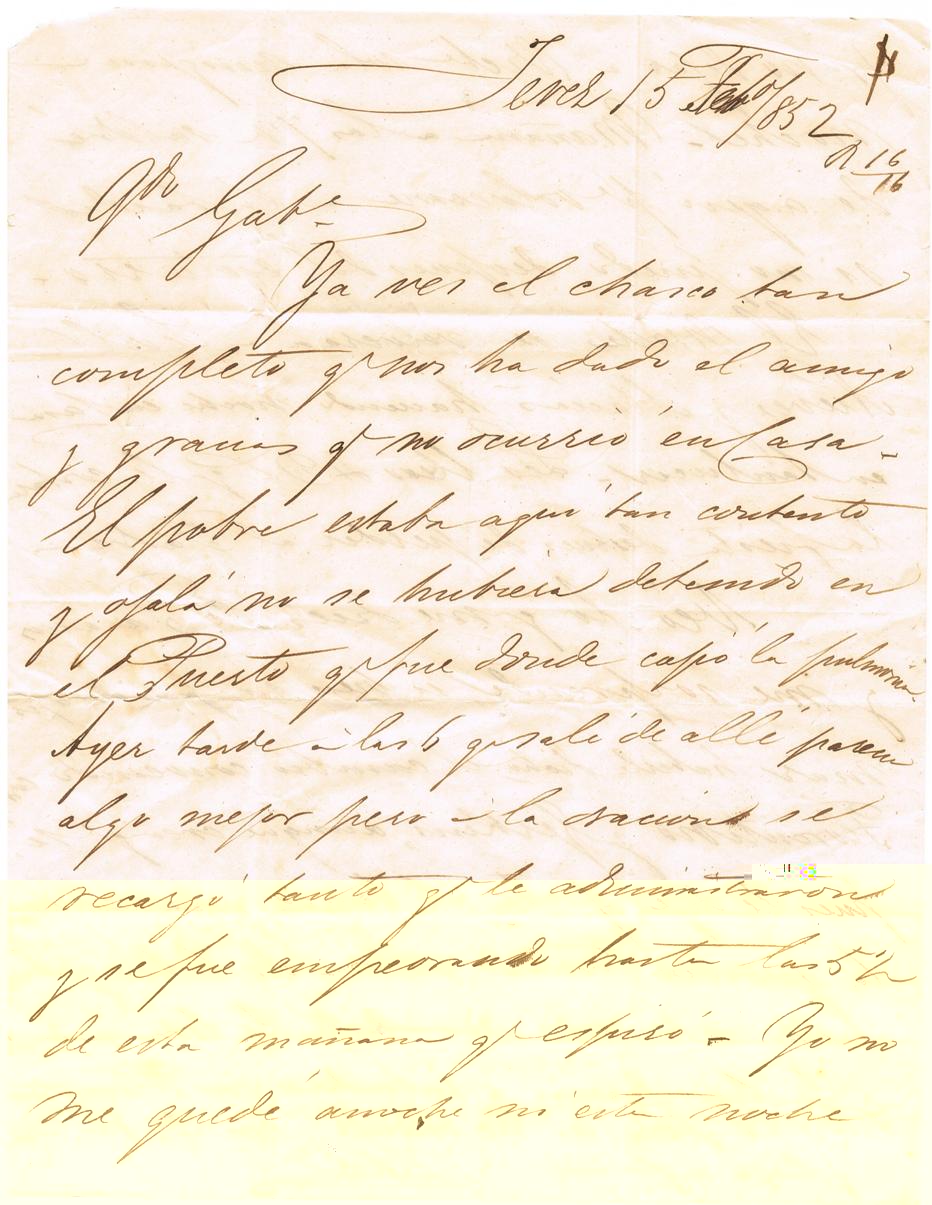 Jerez 15 Febº/852
R 16/16
Qdo Gabe
Ya ves el chasco tan
completo q nos ha dado el amigo
y gracias q no ocurrió en Casa -
El pobre estaba aquí tan contento
y ojalá no se hubiera detenido en
el Puerto q fue donde cojió la pulmonia
Ayer tarde a las 6 q salí de allí parecia
algo mejor pero a la oracion se
recargó tanto q le administraron
y se fue empeorando hasta las 5½
de esta mañana q espiró - Yo no
me quedé anoche ni esta noche